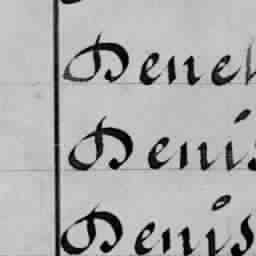 Deneh
Denis
Denis